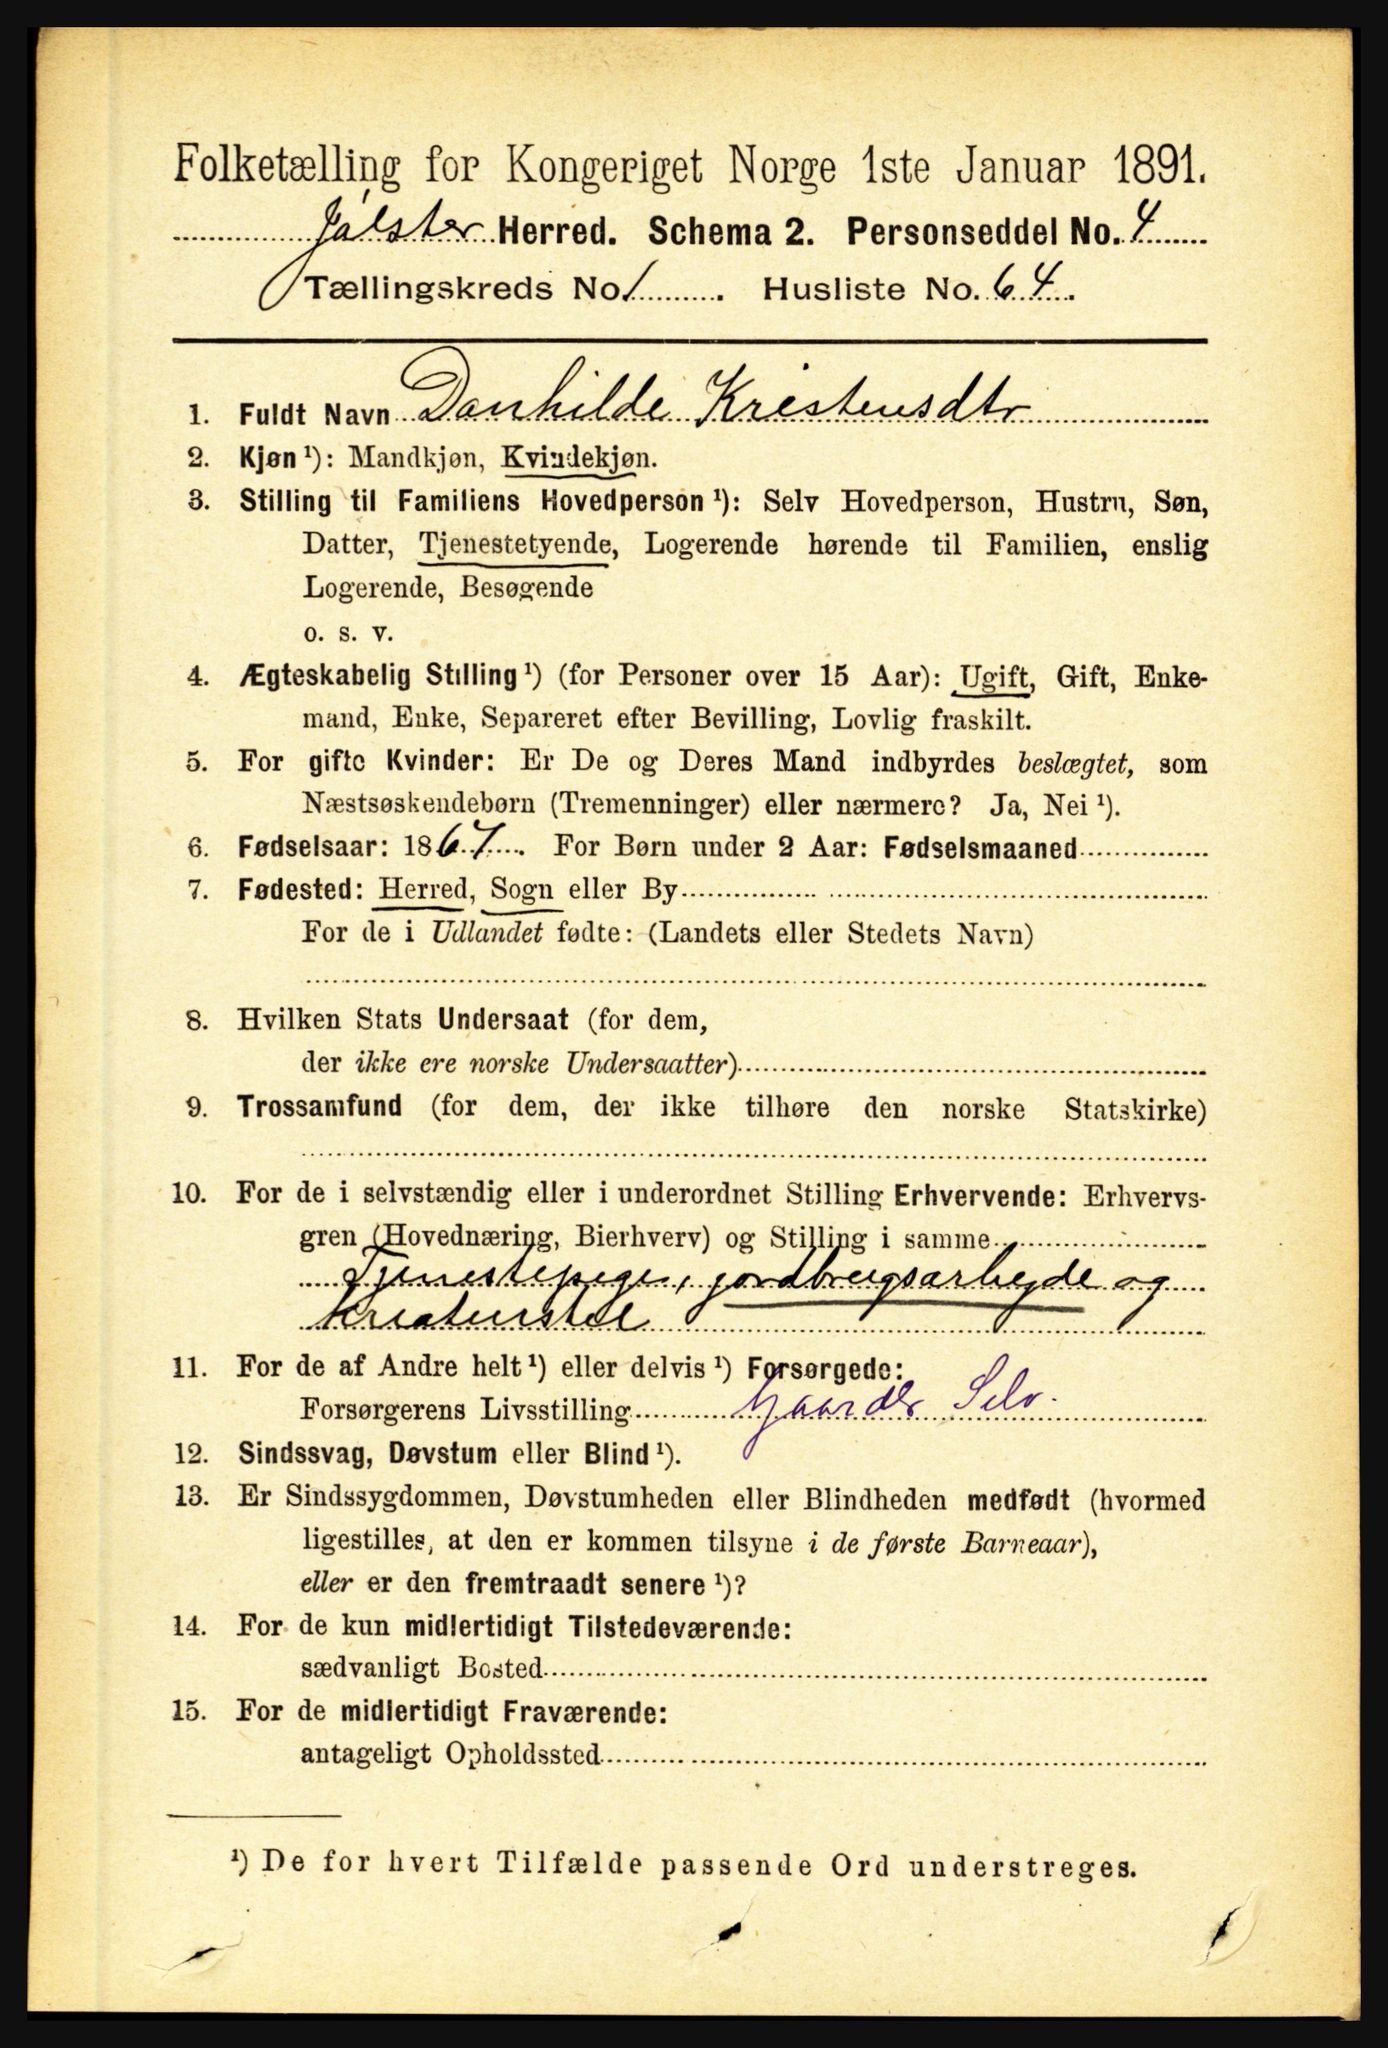 Folketælling for Kongeriget Norge 1ste Januar 1891.
Jølster Herred. Schema 2. Personseddel No. 4
Tællingskreds No 1. Husliste No. 64.
1. Fuldt Navn Danhilde Kristensdtr
2. Kjøn ¹): Mandkjøn, Kvindekjøn.
3. Stilling til Familiens Hovedperson ¹): Selv Hovedperson, Hustru, Søn,
Datter, Tjenestetyende, Logerende hørende til Familien, enslig
Logerende, Besøgende
o. s. v.
4. Ægteskabelig Stilling ¹) (for Personer over 15 Aar): Ugift, Gift, Enke-
mand, Enke, Separeret efter Bevilling, Lovlig fraskilt.
5. For gifte Kvinder: Er De og Deres Mand indbyrdes beslægtet, som
Næstsøskendebørn (Tremenninger) eller nærmere? Ja, Nei ¹).
6. Fødselsaar: 1867. For Børn under 2 Aar: Fødselsmaaned
7. Fødested: Herred, Sogn eller By
For de i Udlandet fødte: (Landets eller Stedets Navn)
8. Hvilken Stats Undersaat (for dem,
der ikke ere norske Undersaatter)
9. Trossamfund (for dem, der ikke tilhøre den norske Statskirke)
10. For de i selvstændig eller i underordnet Stilling Erhvervende: Erhvervs-
gren (Hovednæring, Bierhverv) og Stilling i samme
Tjenestepige, jordbrugsarbeide og
kreaturstel
11. For de af Andre helt ¹) eller delvis ¹) Forsørgede:
Forsørgerens Livsstilling Gaardbr Selv.
12. Sindssvag, Døvstum eller Blind ¹).
13. Er Sindssygdommen, Døvstumheden eller Blindheden medfødt (hvormed
ligestilles, at den er kommen tilsyne i de første Barneaar),
eller er den fremtraadt senere ¹)?
14. For de kun midlertidigt Tilstedeværende:
sædvanligt Bosted
15. For de midlertidigt Fraværende:
antageligt Opholdssted
¹) De for hvert Tilfælde passende Ord understreges.